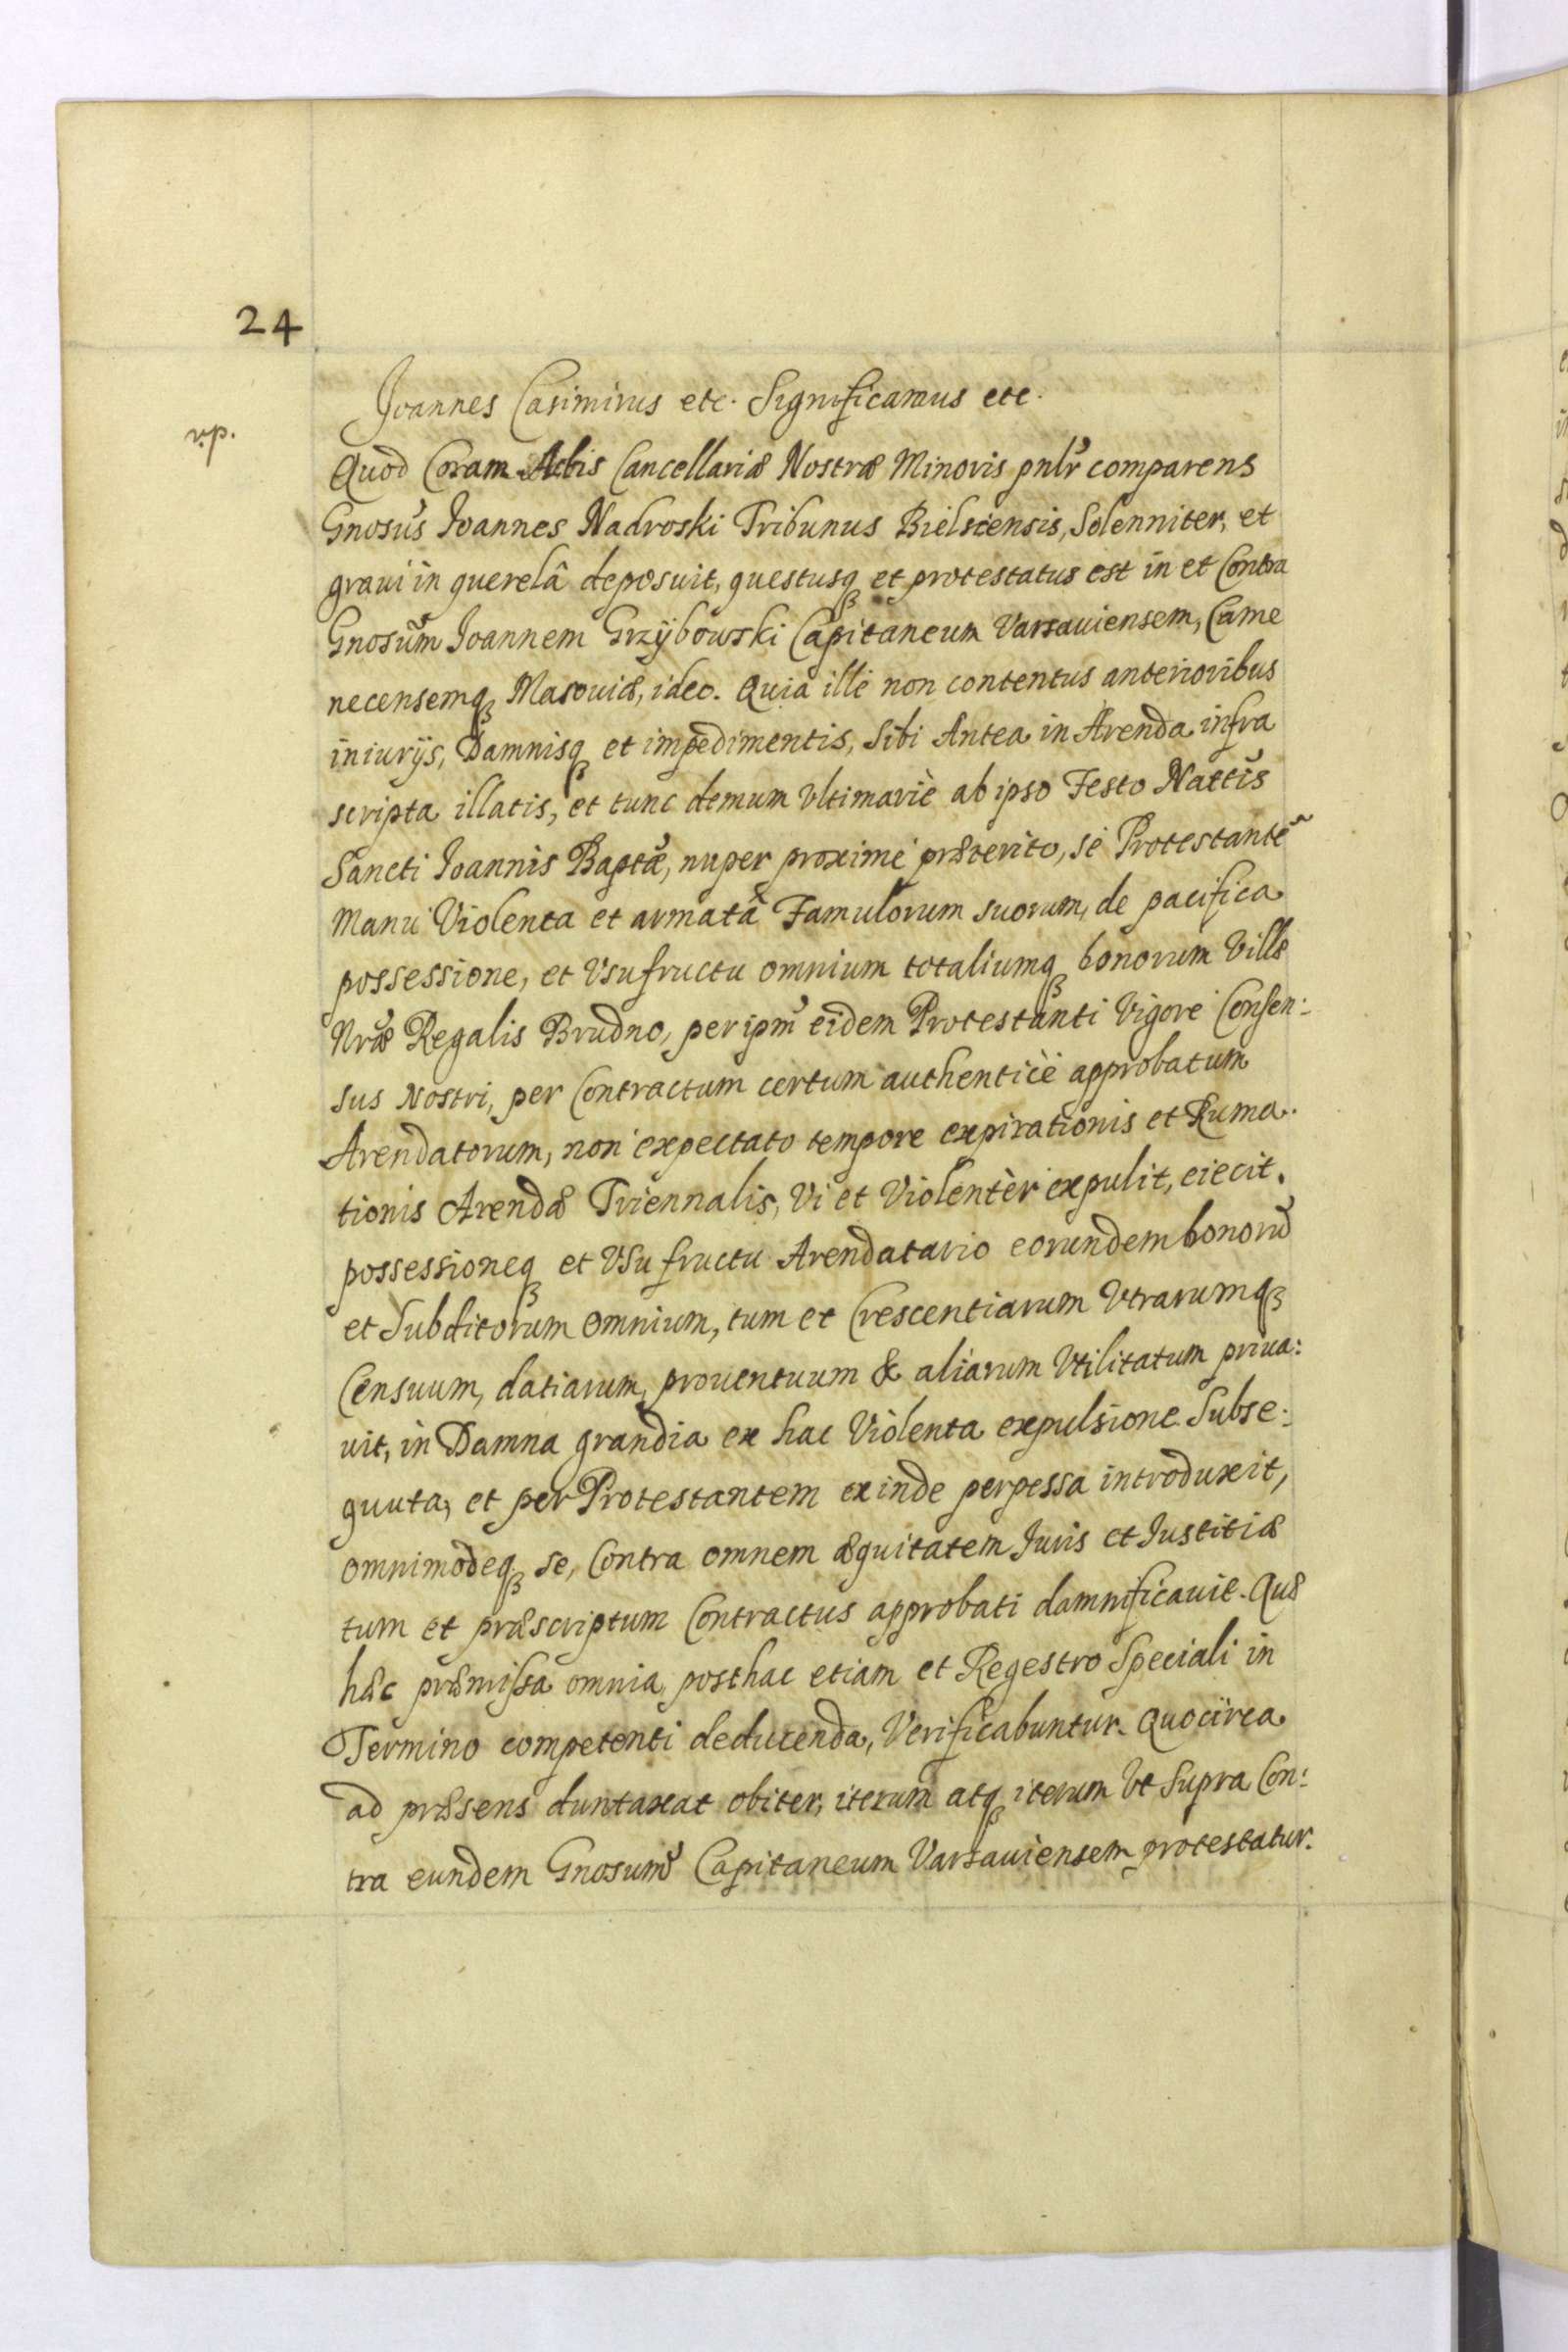 24
Joannes Casimirus etc. Significamus etc.
v.p.
Quod Coram Actis Cancellariæ Nostræ Minoris pnlr comparens
Gnosus Joannes Nadroski Tribunus Bielscensis, Solenniter, et
graui in querelâ deposuit, questusq et protestatus est in et Contra
Gnosum Joannem Grzÿbowski Capitaneum Varsauiensem, Came
necensemq Masouiæ, ideo. Quia ille non contentus anterioribus
iniurijs, Damnisq et impedimentis, Sibi Antea in Arenda infra
scripta illatis, et tunc demum Vltimariè ab ipso Festo Nattis
Sancti Joannis Baptæ, nuper proximè præterito, se Protestante
Manu Violenta et armatâ Famulorum suorum, de pacifica
possessione, et Vsufructu omnium totaliumq bonorum Villæ
Nræ Regalis Brudno, per ipm eidem Protestanti Vigore Consen:
sus Nostri, per Contractum certum authenticè approbatum
Arendatorum, non expectato tempore expirationis et Ruma.
tionis Arendæ Triennalis, Vi et Violentèr expulit, eiecit.
possessioneq et Vsu fructu Arendatario eorundem bonorū
et Subditorum omnium, tum et Crescentiarum Vtrarumq
Censuum, datiarum, prouentuum & aliarum Vtilitatum priua:
uit, in Damna grandia ex hac Violenta expulsione Subse:
quuta, et per Protestantem exinde perpessa introduxit,
omnimodeq se, Contra omnem æquitatem Juris et Justitiæ
tum et præscriptum Contractus approbati damnificauit. Quæ
hæc præmissa omnia, posthac etiam et Regestro Speciali in
Termino competenti deducenda, Verificabuntur. Quocirca
ad præsens duntaxat obiter, iterum atq iterum Vt Supra Con:
tra eundem Gnosum Capitaneum Varsauiensem protestatur.